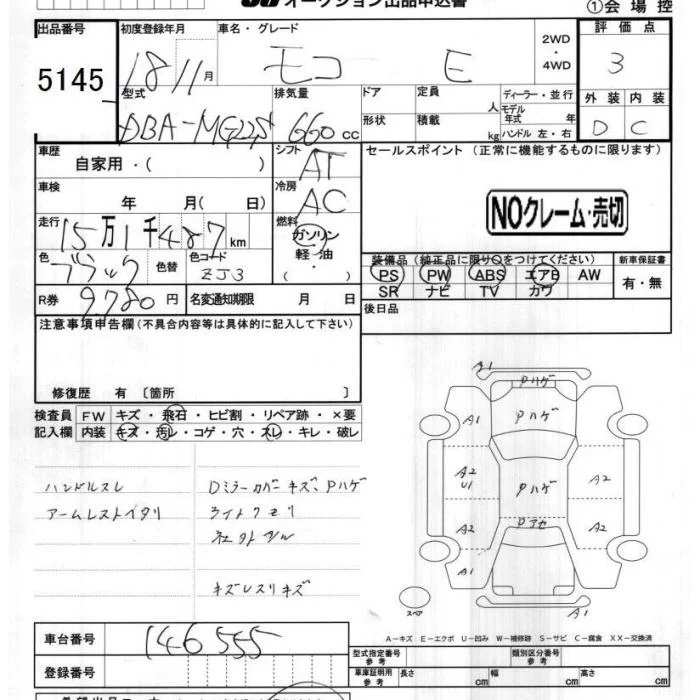 オークション出品申込書
①会場控
出品番号
5145
初度登録年月
18 11月
車名・グレード
モコ E
2WD
・
4WD
評価点
3
外装 内装
D C
型式
DBA-MG22S
排気量
660 cc
ドア
形状
定員
人
積載
kg
ディーラー・並行
モデル
年式 年
ハンドル 左・右
車歴
自家用・( )
シフト
AT
セールスポイント (正常に機能するものに限ります)
NOクレーム・売切
車検
年 月( 日)
冷房
AC
走行
15万1千487km
燃料
ガソリン
軽・油
・( )
色
ブラック
色替
色コード
ZJ3
装備品(純正品に限り○をつけてください)
PS PW ABS エアB AW
SR ナビ TV カワ
新車保証書
有・無
R券
9,780円
名変通知期限 月 日
後日品
注意事項申告欄(不具合内容等は具体的に記入して下さい)
修復歴 有 〔箇所 〕
検査員
記入欄
FW キズ・飛石・ヒビ割・リペア跡・×要
内装 キズ・汚レ・コゲ・穴・スレ・キレ・破レ
ハンドルスレ
アームレストイタリ
Dミラーカバーキズ、Pハゲ
ライトクモリ
キズレスリキズ
A1
Pハゲ
A1
Pハゲ
A2
U1
Pハゲ
A2
A2
Pアセ
A2
A1
スペア
A1
A-キズ E-エクボ U-凹み W-補修跡 S-サビ C-腐食 XX-交換済
車台番号
146555
登録番号
型式指定番号
参考
類別区分番号
参考
車庫証明用
参考
長さ cm 幅 cm 高さ cm